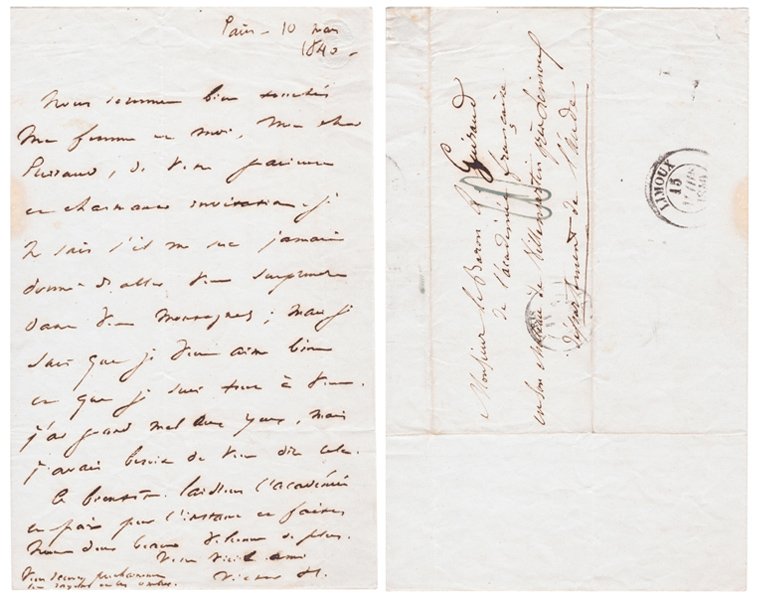 Paris - 10 mai
1840 -
Nous sommes bien touchés
Ma femme et moi, mon cher
Guiraud, de votre gracieuse
et charmante invitation. Je
ne sais s'il me sera jamais
donné d'aller vous surprendre
dans vos montagnes ; mais je
sais que je vous aime bien
et que je suis tout à vous.
j'ai grand mal aux yeux, mais
j'avais besoin de vous dire cela.
à bientôt. laissons l'académie
en paix pour l'instant et faites
nous deux beaux volumes de plus.
Votre vieil ami
Victor H.
Monsieur le Baron Guiraud
de l'académie française
en son château de Villemartin près Limoux
département de l'aude
LIMOUX
15